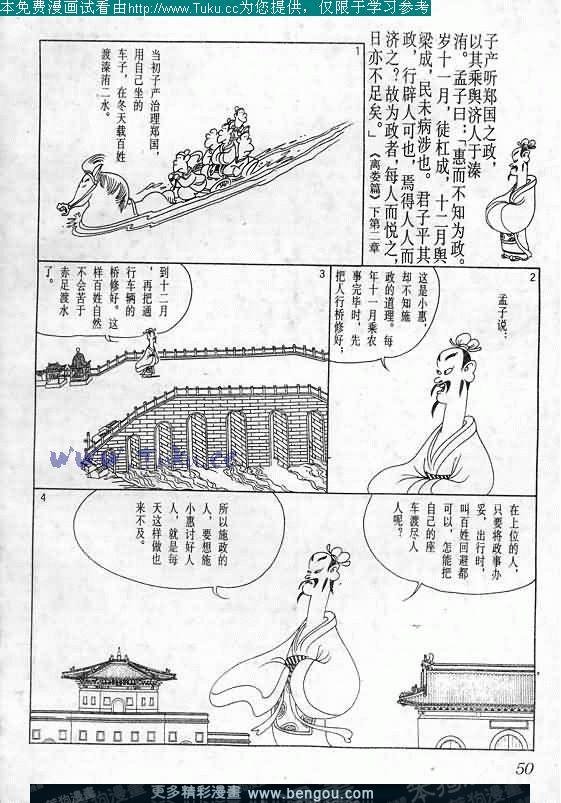 本免费漫画试看由http://www.Tuku.cc为您提供，仅限于学习参考
子产听郑国之政，
以其乘舆济人于溱
洧。孟子曰：「惠而不知为政。
岁十一月，徒杠成，十二月舆
梁成，民未病涉也。君子平其
政，行辟人可也，焉得人人而
济之？故为政者，每人而悦之，
日亦不足矣。」
《离娄篇》下第二章
1
当初子产治理郑国，
用自己坐的
车子，在冬天载百姓
渡溱洧二水。
2
孟子说：
这是小惠，
却不知施
政的道理。每
年十一月乘农
事完毕时，先
把人行桥修好；
3
到十二月
，再把通
行车辆的
桥修好。这
样百姓自然
不会苦于
赤足渡水
了。
www.Tuku.cc
4
在上位的人，
只要将政事办
妥，出行时，
叫百姓回避都
可以，怎能把
自己的座
车渡尽人
人呢？
所以施政的
人，要想施
小惠讨好人
人，就是每
天这样做也
来不及。
50
更多精彩漫畫 www.bengou.com